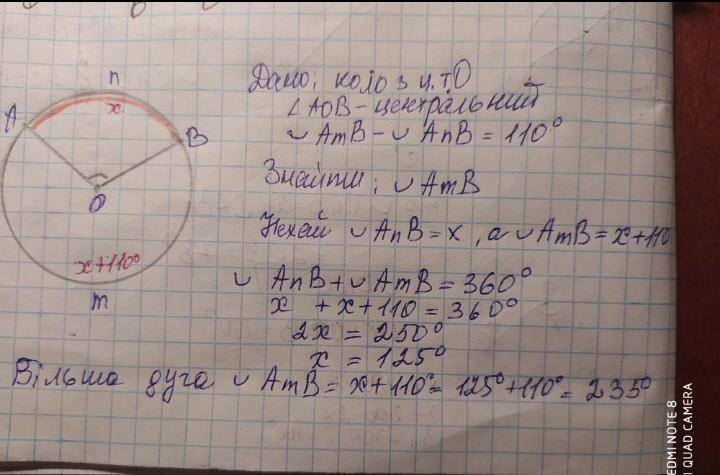 n
x
A
B
O
x+110°
m
Дано: коло з ц. т O
∠AOB - центральний
◡ AmB - ◡ AnB = 110°
Знайти: ◡ AmB
Нехай ◡ AnB = x, а ◡ AmB = x+110
◡ AnB + ◡ AmB = 360°
x + x + 110 = 360°
2x = 250°
x = 125°
Більша дуга ◡ AmB = x+110° = 125°+110° = 235°
EDMI NOTE 8
I QUAD CAMERA